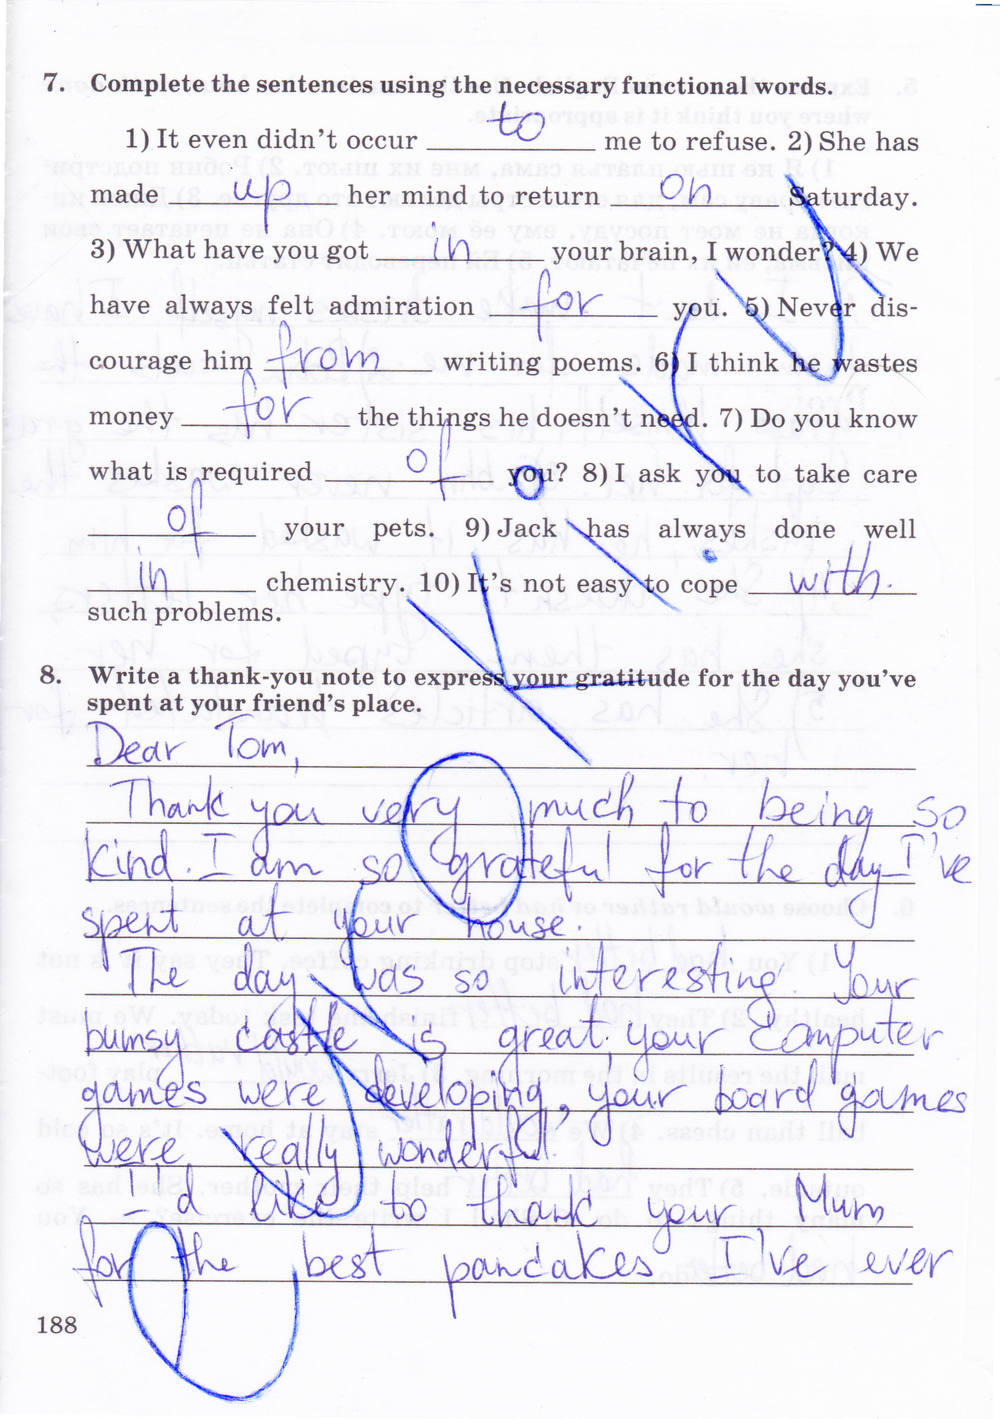 7. Complete the sentences using the necessary functional words.
1) It even didn't occur to me to refuse. 2) She has
made up her mind to return on Saturday.
3) What have you got in your brain, I wonder? 4) We
have always felt admiration for you. 5) Never dis-
courage him from writing poems. 6) I think he wastes
money for the things he doesn't need. 7) Do you know
what is required of you? 8) I ask you to take care
of your pets. 9) Jack has always done well
in chemistry. 10) It's not easy to cope with.
such problems.
8. Write a thank-you note to express your gratitude for the day you've
spent at your friend's place.
Dear Tom,
Thank you very much to being so
kind. I am so grateful for the day I've
spent at your house.
The day was so interesting. Your
bumsy castle is great, your computer
games were developing, your board games
were really wonderful.
I'd like to thank your Mum
for the best pancakes I've ever
188